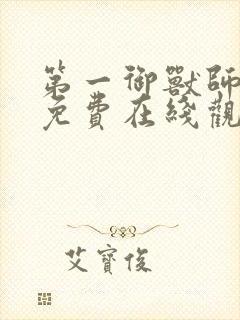 第一御獸師
免費在綫觀
艾寶俊